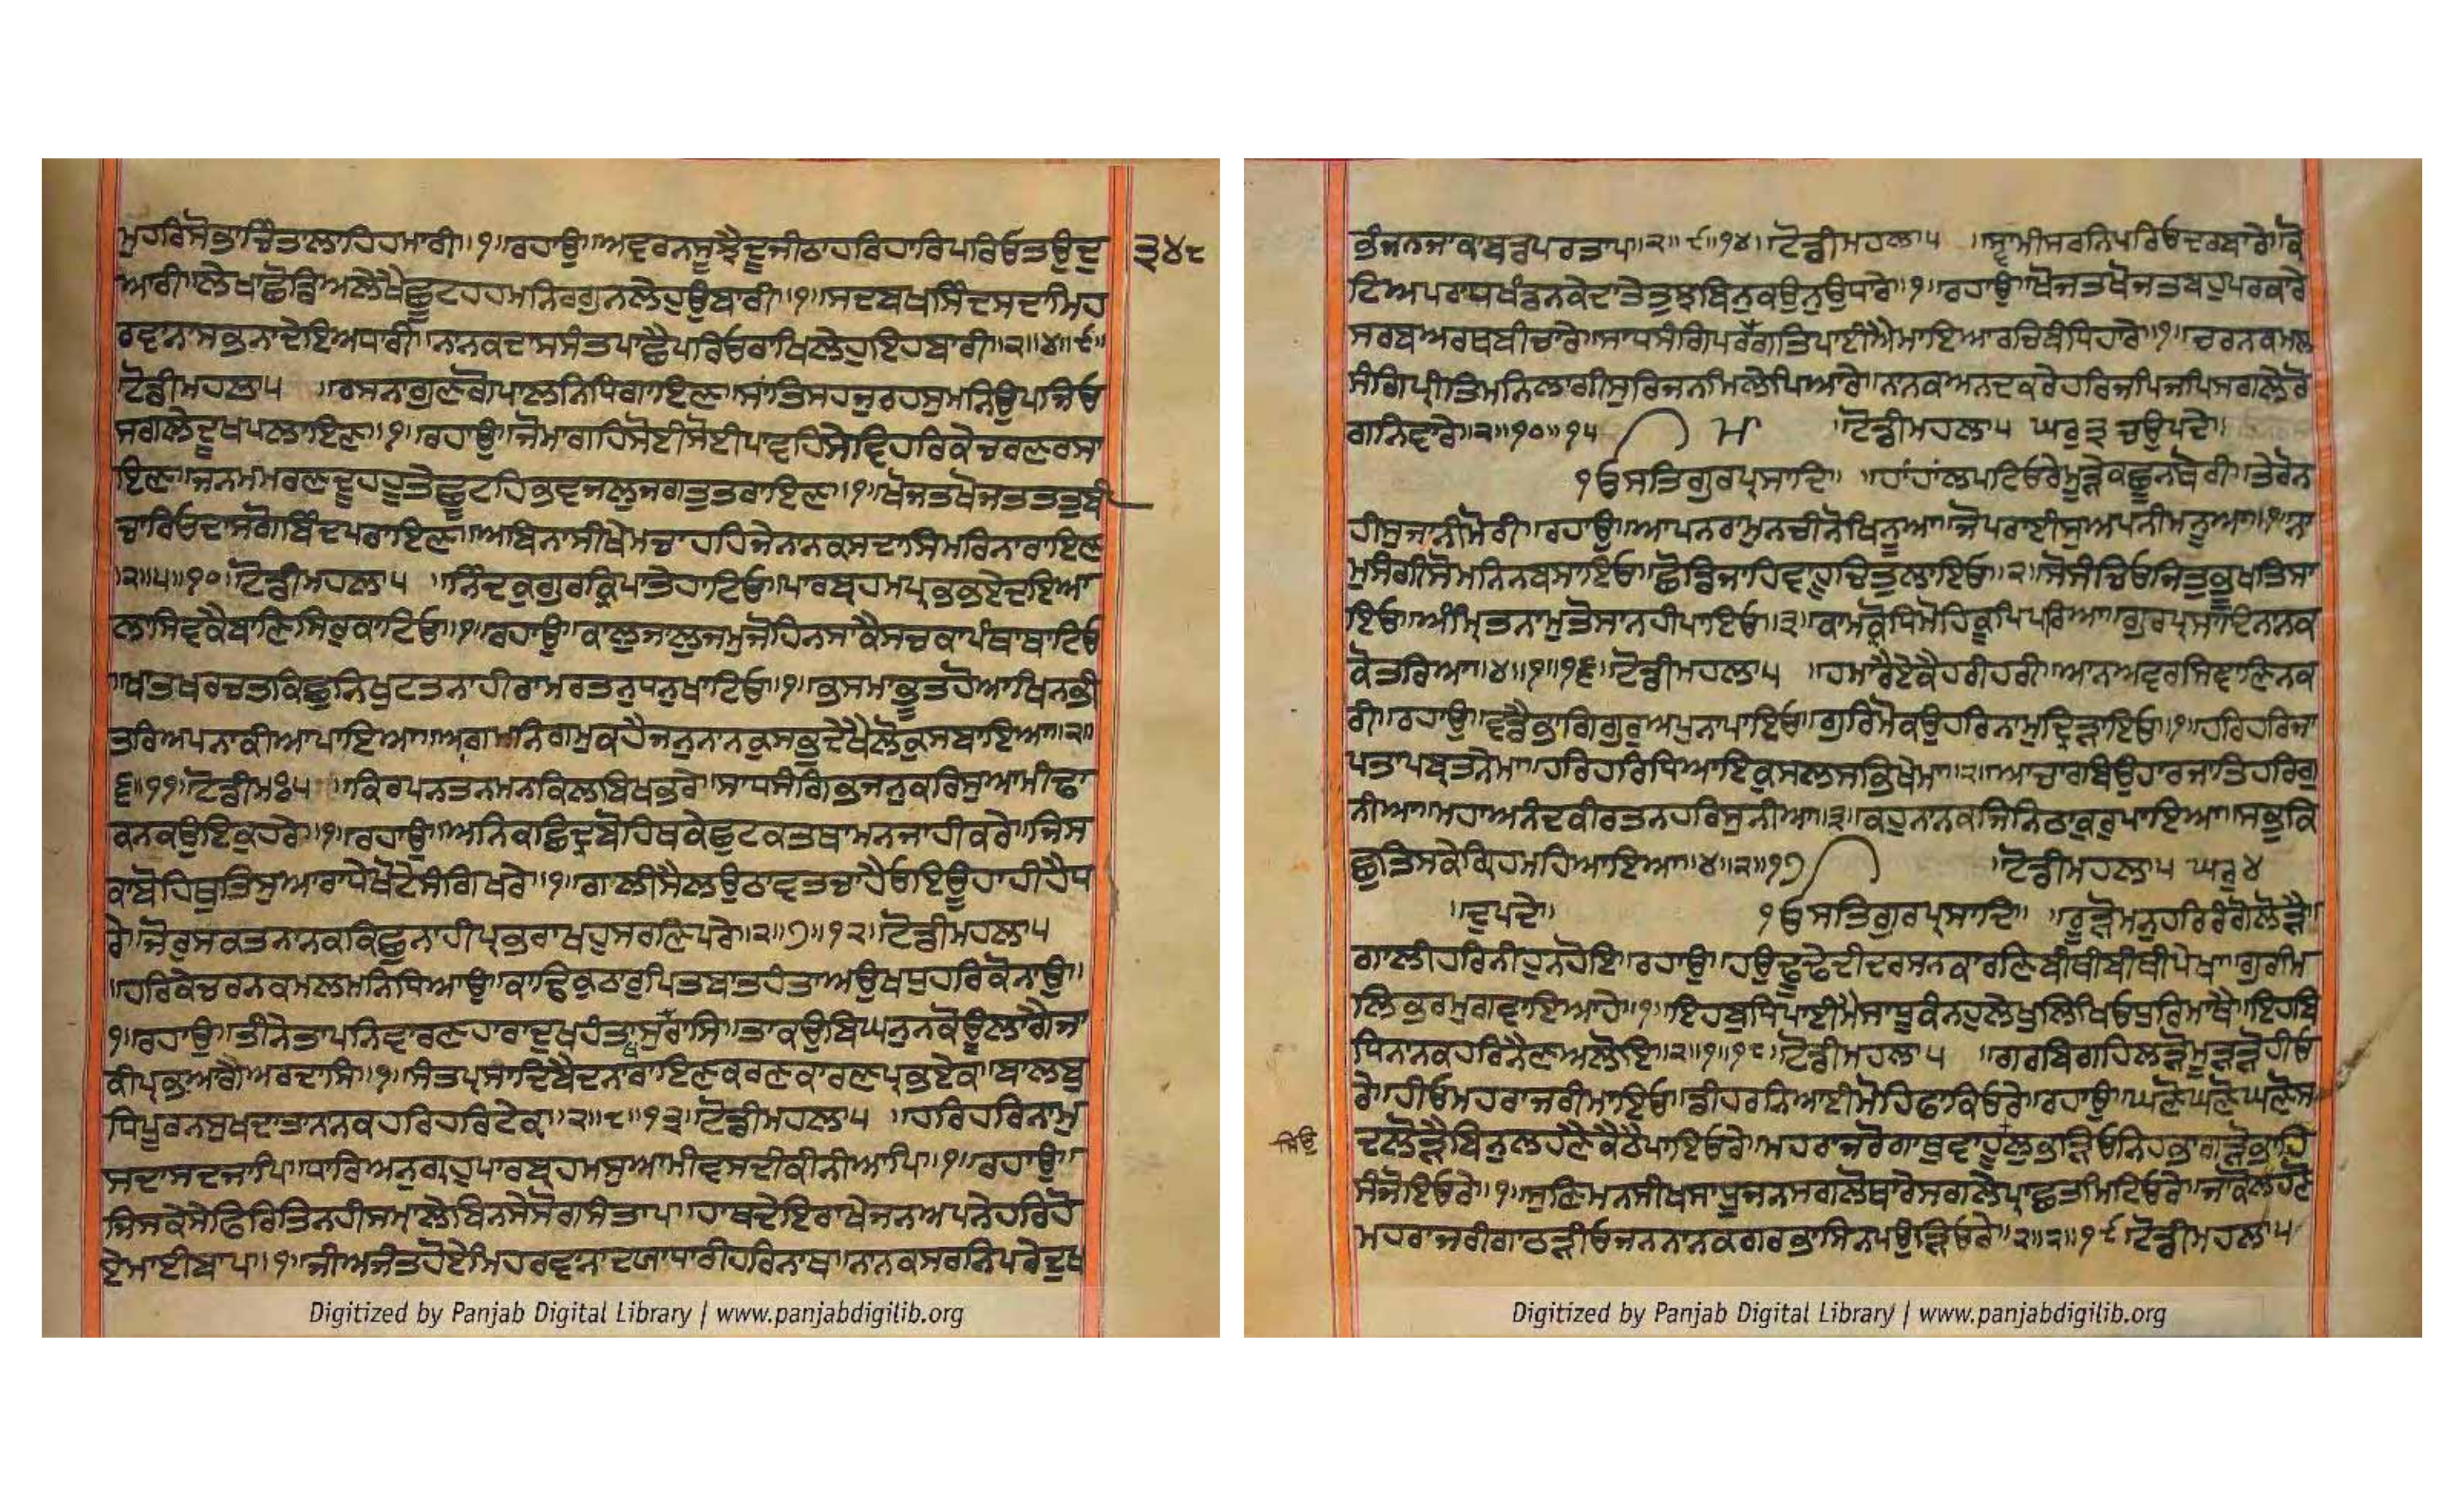 ਮੁਹਰਿਸੋਭਾਚਿੰਤਲਾਹਿਹਮਾਰੀ॥੧॥ਰਹਾਉ॥ਅਵਰਨਸੂਝੈਦੂਜੀਠਾਹਰਿਹਾਰਿਪਰਿਓਤਉਦੁ ੩੪੮
ਆਰੀ॥ਲੇਖਾਛੋਡਿਅਲੇਖੈਛੂਟਹਹਮਨਿਰਗੁਨਲੇਹੁਉਬਾਰੀ॥੧॥ਸਦਬਖਸਿੰਦਸਦਾਮਿਹ
ਰਵਾਨਾਸਭਨਾਦੇਇਅਧਾਰੀ॥ਨਾਨਕਦਾਸਸੰਤਪਾਛੈਪਰਿਓਰਾਖਿਲੇਹੁਇਹਬਾਰੀ॥੨॥੪॥੯॥
ਟੋਡੀਮਹਲਾ੫ ॥ਰਸਨਾਗੁਣਗੋਪਾਲਨਿਧਿਗਾਇਣ॥ਸਾਂਤਿਸਹਜੁਰਹਸੁਮਨਿਉਪਜਿਓ
ਸਗਲੇਦੂਖਪਲਾਇਣ॥੧॥ਰਹਾਉ॥ਜੋਮਾਗਹਿਸੋਈਸੋਈਪਾਵਹਿਸੇਵਿਹਰਿਕੇਚਰਣਰਸਾ
ਇਣ॥ਜਨਮਮਰਣਦੁਹਹੂਤੇਛੂਟਹਿਭਵਜਲੁਜਗਤੁਤਰਾਇਣ॥੧॥ਖੋਜਤਖੋਜਤਤਤੁਬੀ
ਚਾਰਿਓਦਾਸਗੋਬਿੰਦਪਰਾਇਣ॥ਅਬਿਨਾਸੀਖੇਮਚਾਹਹਿਜੇਨਾਨਕਸਦਾਸਿਮਰਿਨਾਰਾਇਣ
॥੨॥੫॥੧੦॥ਟੋਡੀਮਹਲਾ੫ ॥ਨਿੰਦਕੁਗੁਰਕਿਰਪਾਤੇਹਾਟਿਓ॥ਪਾਰਬ੍ਰਹਮਪ੍ਰਭਭਏਦਇਆ
ਲਾਸਿਵਕੈਬਾਣਿਸਿਰੁਕਾਟਿਓ॥੧॥ਰਹਾਉ॥ਕਾਲੁਜਾਲੁਜਮੁਜੋਹਿਨਸਾਕੈਸਚਕਾਪੰਥਾਥਾਟਿਓ
॥ਖਾਤਖਰਚਤਕਿਛੁਨਿਖੁਟਤਨਾਹੀਰਾਮਰਤਨੁਧਨੁਖਾਟਿਓ॥੧॥ਭਸਮਾਭੂਤਹੋਆਖਿਨਭੀ
ਤਰਿਅਪਨਾਕੀਆਪਾਇਆ॥ਅਗਮਨਿਗਮੁਕਹੈਜਨੁਨਾਨਕੁਸਭੁਦੇਖੈਲੋਕੁਸਬਾਇਆ॥੨॥
੬॥੧੧॥ਟੋਡੀਮਃ੫ ॥ਕਿਰਪਨਤਨਮਨਕਿਲਬਿਖਭਰੇ॥ਸਾਧਸੰਗਿਭਜਨੁਕਰਿਸੁਆਮੀਢਾ
ਕਨਕਉਇਕੁਹਰੇ॥੧॥ਰਹਾਉ॥ਅਨਿਕਛਿਦ੍ਰਬੋਹਿਥਕੇਛੁਟਕਤਥਾਮਨਜਾਹੀਕਰੇ॥ਜਿਸ
ਕਾਬੋਹਿਥੁਤਿਸੁਆਰਾਧੇਖੋਟੇਸੰਗਿਖਰੇ॥੧॥ਗਲੀਸੈਲਉਠਾਵਤਚਾਹੈਓਇਊਹਾਹੀਹੈਧ
ਰੇ॥ਜੋਰੁਸਕਤਨਾਨਕਕਿਛੁਨਾਹੀਪ੍ਰਭਰਾਖਹੁਸਰਣਿਪਰੇ॥੨॥੭॥੧੨॥ਟੋਡੀਮਹਲਾ੫
॥ਹਰਿਕੇਚਰਨਕਮਲਮਨਿਧਿਆਉ॥ਕਾਢਿਕੁਠਾਰੁਪਿਤਬਾਤਹੰਤਾਅਉਖਧੁਹਰਿਕੋਨਾਉ॥
੧॥ਰਹਾਉ॥ਤੀਨੇਤਾਪਨਿਵਾਰਣਹਾਰਾਦੁਖਹੰਤਾਸੁਖਰਾਸਿ॥ਤਾਕਉਬਿਘਨੁਨਕੋਊਲਾਗੈਜਾ
ਕੀਪ੍ਰਭਆਗੈਅਰਦਾਸਿ॥੧॥ਸੰਤਪ੍ਰਸਾਦਿਬੈਦਨਾਰਾਇਣਕਰਣਕਾਰਣਪ੍ਰਭਏਕ॥ਬਾਲਬੁ
ਧਿਪੂਰਨਸੁਖਦਾਤਾਨਾਨਕਹਰਿਹਰਿਟੇਕ॥੨॥੮॥੧੩॥ਟੋਡੀਮਹਲਾ੫ ॥ਹਰਿਹਰਿਨਾਮੁ
ਸਦਾਸਦਜਾਪਿ॥ਧਾਰਿਅਨੁਗ੍ਰਹੁਪਾਰਬ੍ਰਹਮਸੁਆਮੀਵਸਦੀਕੀਨੀਆਪਿ॥੧॥ਰਹਾਉ॥
ਜਿਸਕੇਸੇਫਿਰਿਤਿਨਹੀਸਮਾਲੇਬਿਨਸੇਸੋਗਸੰਤਾਪ॥ਹਾਥਦੇਇਰਾਖੇਜਨਅਪਨੇਹਰਿਹੋ
ਏਮਾਈਬਾਪ॥੧॥ਜੀਅਜੰਤਹੋਏਮਿਹਰਵਾਨਾਦਯਾਧਾਰੀਹਰਿਨਾਥ॥ਨਾਨਕਸਰਨਿਪਰੇਦੁਖ
Digitized by Panjab Digital Library | www.panjabdigilib.org
ਭੰਜਨਜਾਕਾਬਡਪਰਤਾਪ॥੨॥੯॥੧੪॥ਟੋਡੀਮਹਲਾ੫ ॥ਸ੍ਵਾਮੀਸਰਨਿਪਰਿਓਦਰਬਾਰੇ॥ਕੋ
ਟਿਅਪਰਾਧਖੰਡਨਕੇਦਾਤੇਤੁਝਬਿਨੁਕਉਨੁਉਧਾਰੇ॥੧॥ਰਹਾਉ॥ਖੋਜਤਖੋਜਤਬਹੁਪਰਕਾਰੇ
ਸਰਬਅਰਥਬੀਚਾਰੇ॥ਸਾਧਸੰਗਿਪਰਮਗਤਿਪਾਈਐਮਾਇਆਰਚਿਬੰਧਿਹਾਰੇ॥੧॥ਚਰਨਕਮਲ
ਸੰਗਿਪ੍ਰੀਤਿਮਨਿਲਾਗੀਸੁਰਿਜਨਮਿਲੇਪਿਆਰੇ॥ਨਾਨਕਅਨਦਕਰੇਹਰਿਜਪਿਜਪਿਸਗਲੇਰੋ
ਗਨਿਵਾਰੇ॥੨॥੧੦॥੧੫ ਟੋਡੀਮਹਲਾ੫ ਘਰੁ੩ ਚਉਪਦੇ॥
੧ਓਸਤਿਗੁਰਪ੍ਰਸਾਦਿ॥ ॥ਹਾਂਹਾਂਲਪਟਿਓਰੇਮੂੜ੍ਹੇਕਛੂਨਥੋਰੀ॥ਤੇਰੋਨ
ਹੀਸੁਜਾਨੀਮੋਰੀ॥ਰਹਾਉ॥ਆਪਨਰਾਮੁਨਚੀਨੋਖਿਨੂਆ॥ਜੋਪਰਾਈਸੁਅਪਨੀਮਨੂਆ॥੧॥ਨਾ
ਮੁਸੰਗੀਸੋਮਨਿਨਬਸਾਇਓ॥ਛੋਡਿਜਾਹਿਵਾਹੂਚਿਤੁਲਾਇਓ॥੨॥ਸੋਸੰਚਿਓਜਿਤੁਭੂਖਤਿਸਾ
ਇਓ॥ਅੰਮ੍ਰਿਤਨਾਮੁਤੋਸਾਨਹੀਪਾਇਓ॥੩॥ਕਾਮਕ੍ਰੋਧਿਮੋਹਕੂਪਿਪਰਿਆ॥ਗੁਰਪ੍ਰਸਾਦਿਨਾਨਕ
ਕੋਤਰਿਆ॥੪॥੧॥੧੬॥ਟੋਡੀਮਹਲਾ੫ ॥ਹਮਾਰੈਏਕੈਹਰੀਹਰੀ॥ਆਨਅਵਰਸਿਞਾਣਿਨਕ
ਰੀ॥ਰਹਾਉ॥ਵਡੈਭਾਗਿਗੁਰੁਅਪੁਨਾਪਾਇਓ॥ਗੁਰਿਮੋਕਉਹਰਿਨਾਮੁਦ੍ਰਿੜਾਇਓ॥੧॥ਹਰਿਹਰਿਜਾ
ਪਤਾਪਬ੍ਰਤਨੇਮਾ॥ਹਰਿਹਰਿਧਿਆਇਕੁਸਲਸਭਿਖੇਮਾ॥੨॥ਆਚਾਰਬਿਉਹਾਰਜਾਤਿਹਰਿਗੁ
ਨੀਆ॥ਮਹਾਅਨੰਦਕੀਰਤਨਹਰਿਸੁਨੀਆ॥੩॥ਕਹੁਨਾਨਕਜਿਨਿਠਾਕੁਰੁਪਾਇਆ॥ਸਭੁਕਿ
ਛੁਤਿਸਕੇਗ੍ਰਿਹਮਹਿਆਇਆ॥੪॥੨॥੧੭ ॥ਟੋਡੀਮਹਲਾ੫ ਘਰੁ੪
॥ਦੁਪਦੇ॥ ੧ਓਸਤਿਗੁਰਪ੍ਰਸਾਦਿ॥ ॥ਰੂੜੋਮਨੁਹਰਿਰੰਗੋਲੋੜੈ॥
ਗਾਲੀਹਰਿਨੀਹੁਨਹੋਇ॥ਰਹਾਉ॥ਹਉਢੂਢੇਦੀਦਰਸਨਕਾਰਣਿਬੀਥੀਬੀਥੀਪੇਖਾ॥ਗੁਰਮਿ
ਲਿਭਰਮੁਗਵਾਇਆਹੇ॥੧॥ਇਹਬੁਧਿਪਾਈਮੈਸਾਧੂਕੰਨਹੁਲੇਖੁਲਿਖਿਓਧੁਰਿਮਾਥੈ॥ਇਹਬਿ
ਧਿਨਾਨਕਹਰਿਨੈਣਅਲੋਇ॥੨॥੧॥੧੮॥ਟੋਡੀਮਹਲਾ੫ ॥ਗਰਬਿਗਹਿਲੜੋਮੂੜੜੋਹੀਓ
ਰੇ॥ਹੀਓਮਹਰਾਜਰੀਮਾਇਓ॥ਡੀਹਰਨਿਆਈਮੋਹਿਫਾਕਿਓਰੇ॥ਰਹਾਉ॥ਘਣੋਘਣੋਘਣੋਸ
ਜਿਉ ਦਲੋੜੈਬਿਨੁਲਹਣੇਕੈਠੈਪਾਇਓਰੇ॥ਮਹਰਾਜਰੋਗਾਥੁਵਾਹੂਲੁਭੜਿਓਨਿਹਭਾਗੜੋਭਾਹਿ
ਸੰਜੋਇਓਰੇ॥੧॥ਸੁਣਿਮਨਸੀਖਸਾਧੂਜਨਸਗਲੋਥਾਰੇਸਗਲੇਪ੍ਰਾਛਤਮਿਟਿਓਰੇ॥ਜਾਕੋਲਹਣੋ
ਮਹਰਾਜਰੀਗਾਠੜੀਓਜਨਨਾਨਕਗਰਭਾਸਿਨਪਉੜਿਓਰੇ॥੨॥੨॥੧੯॥ਟੋਡੀਮਹਲਾ੫
Digitized by Panjab Digital Library | www.panjabdigilib.org